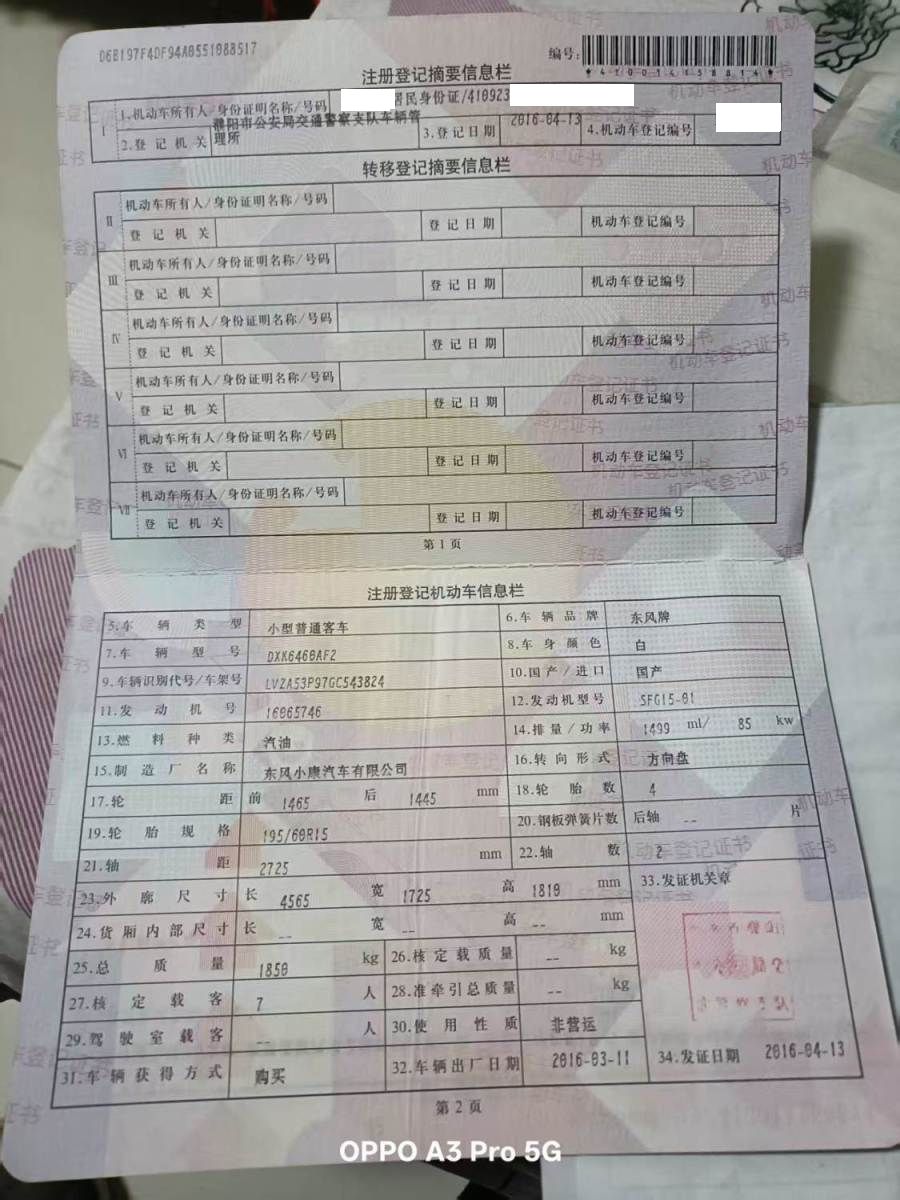 D6B197F4DF94A0551988517
编号:
*410014158814*
注册登记摘要信息栏
I
1.机动车所有人/身份证明名称/号码 居民身份证/410923
2.登记机关 濮阳市公安局交通警察支队车辆管理所 3.登记日期 2016-04-13 4.机动车登记编号
转移登记摘要信息栏
II
机动车所有人/身份证明名称/号码
登记机关 登记日期 机动车登记编号
III
机动车所有人/身份证明名称/号码
登记机关 登记日期 机动车登记编号
IV
机动车所有人/身份证明名称/号码
登记机关 登记日期 机动车登记编号
V
机动车所有人/身份证明名称/号码
登记机关 登记日期 机动车登记编号
VI
机动车所有人/身份证明名称/号码
登记机关 登记日期 机动车登记编号
VII
机动车所有人/身份证明名称/号码
登记机关 登记日期 机动车登记编号
第1页
注册登记机动车信息栏
5.车辆类型 小型普通客车 6.车辆品牌 东风牌
7.车辆型号 DXK6460AF2 8.车身颜色 白
9.车辆识别代号/车架号 LVZA53P97GC543824 10.国产/进口 国产
11.发动机号 16065746 12.发动机型号 SFG15-01
13.燃料种类 汽油 14.排量/功率 1499 ml/ 85 kw
15.制造厂名称 东风小康汽车有限公司 16.转向形式 方向盘
17.轮距 前 1465 后 1445 mm 18.轮胎数 4
19.轮胎规格 195/60R15 20.钢板弹簧片数 后轴 -- 片
21.轴距 2725 mm 22.轴数 2
23.外廓尺寸 长 4565 宽 1725 高 1810 mm 33.发证机关章
24.货厢内部尺寸 长 -- 宽 -- 高 -- mm
25.总质量 1850 kg 26.核定载质量 -- kg
27.核定载客 7 人 28.准牵引总质量 -- kg
29.驾驶室载客 -- 人 30.使用性质 非营运
31.车辆获得方式 购买 32.车辆出厂日期 2016-03-11 34.发证日期 2016-04-13
第2页
OPPO A3 Pro 5G